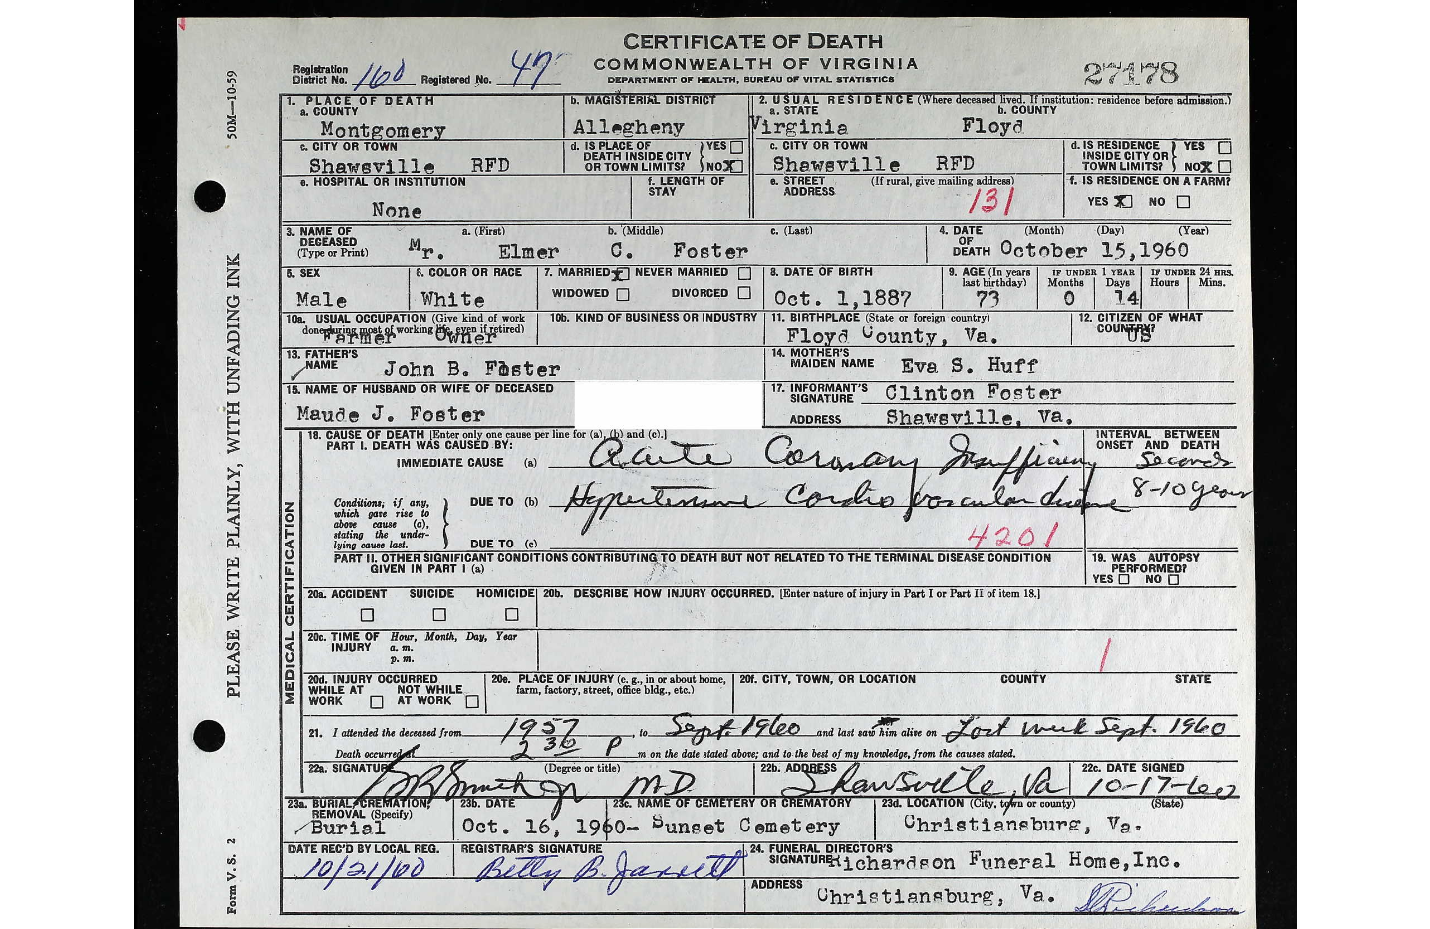 CERTIFICATE OF DEATH
COMMONWEALTH OF VIRGINIA
DEPARTMENT OF HEALTH, BUREAU OF VITAL STATISTICS
27178
Registration District No. 160 Registered No. 47
50M—10-59
PLEASE WRITE PLAINLY, WITH UNFADING INK
Form V. S. 2
1. PLACE OF DEATH
a. COUNTY
Montgomery
b. MAGISTERIAL DISTRICT
Allegheny
2. USUAL RESIDENCE (Where deceased lived. If institution: residence before admission.)
a. STATE b. COUNTY
Virginia Floyd
c. CITY OR TOWN
Shawsville RFD
d. IS PLACE OF DEATH INSIDE CITY OR TOWN LIMITS? YES NO X
c. CITY OR TOWN
Shawsville RFD
d. IS RESIDENCE INSIDE CITY OR TOWN LIMITS? YES NO X
e. HOSPITAL OR INSTITUTION
None
f. LENGTH OF STAY
e. STREET ADDRESS (If rural, give mailing address)
131
f. IS RESIDENCE ON A FARM?
YES X NO
3. NAME OF DECEASED (Type or Print) a. (First) b. (Middle) c. (Last)
Mr. Elmer C. Foster
4. DATE OF DEATH (Month) (Day) (Year)
October 15,1960
5. SEX
Male
6. COLOR OR RACE
White
7. MARRIED X NEVER MARRIED
WIDOWED DIVORCED
8. DATE OF BIRTH
Oct. 1,1887
9. AGE (In years last birthday)
73
IF UNDER 1 YEAR
Months Days
0 14
IF UNDER 24 HRS.
Hours Mins.
10a. USUAL OCCUPATION (Give kind of work done during most of working life, even if retired)
Farmer Owner
10b. KIND OF BUSINESS OR INDUSTRY
11. BIRTHPLACE (State or foreign country)
Floyd County, Va.
12. CITIZEN OF WHAT COUNTRY?
US
13. FATHER'S NAME
John B. Foster
14. MOTHER'S MAIDEN NAME Eva S. Huff
15. NAME OF HUSBAND OR WIFE OF DECEASED
Maude J. Foster
17. INFORMANT'S SIGNATURE Clinton Foster
ADDRESS Shawsville, Va.
MEDICAL CERTIFICATION
18. CAUSE OF DEATH [Enter only one cause per line for (a), (b) and (c).]
PART I. DEATH WAS CAUSED BY:
INTERVAL BETWEEN ONSET AND DEATH
IMMEDIATE CAUSE (a) Acute Coronary Insufficiency Seconds
Conditions, if any, which gave rise to above cause (a), stating the underlying cause last.
DUE TO (b) Hypertensive Cardio vascular disease 8-10 years
DUE TO (c)
4201
PART II. OTHER SIGNIFICANT CONDITIONS CONTRIBUTING TO DEATH BUT NOT RELATED TO THE TERMINAL DISEASE CONDITION GIVEN IN PART I (a)
19. WAS AUTOPSY PERFORMED?
YES NO
20a. ACCIDENT SUICIDE HOMICIDE
20b. DESCRIBE HOW INJURY OCCURRED. [Enter nature of injury in Part I or Part II of item 18.]
20c. TIME OF INJURY Hour, Month, Day, Year
a. m.
p. m.
1
20d. INJURY OCCURRED
WHILE AT WORK NOT WHILE AT WORK
20e. PLACE OF INJURY (e. g., in or about home, farm, factory, street, office bldg., etc.)
20f. CITY, TOWN, OR LOCATION COUNTY STATE
21. I attended the deceased from 1957, to Sept. 1960 and last saw him alive on Last week Sept. 1960
Death occurred at 2 30 P m on the date stated above; and to the best of my knowledge, from the causes stated.
22a. SIGNATURE (Degree or title)
Smith Jr MD
22b. ADDRESS
Shawsville, Va
22c. DATE SIGNED
10-17-60
23a. BURIAL, CREMATION, REMOVAL (Specify)
Burial
23b. DATE
Oct. 16, 1960-
23c. NAME OF CEMETERY OR CREMATORY
Sunset Cemetery
23d. LOCATION (City, town or county) (State)
Christiansburg, Va.
DATE REC'D BY LOCAL REG.
10/21/60
REGISTRAR'S SIGNATURE
Betty B. Jarrett
24. FUNERAL DIRECTOR'S SIGNATURE Richardson Funeral Home,Inc.
ADDRESS
Christiansburg, Va.
Richardson